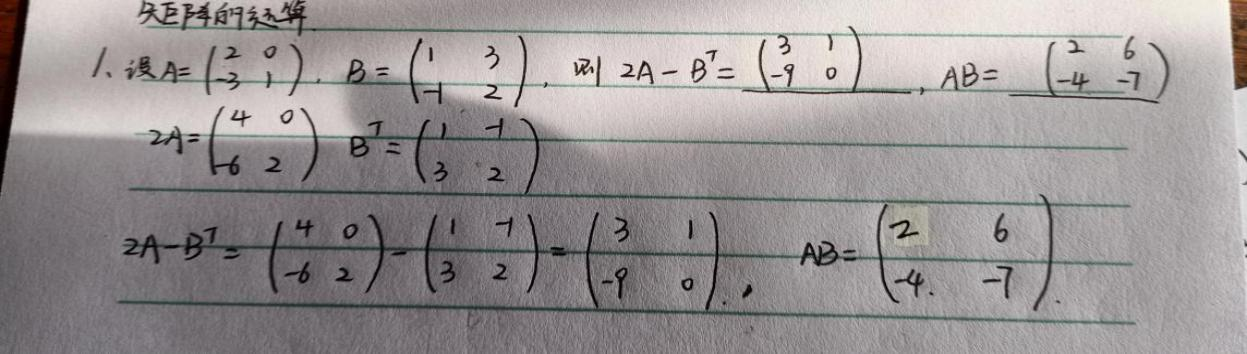 矩阵的运算
1、设A=(2 0 -3 1), B=(1 3 -1 2), 则 2A-Bᵀ=(3 1 -9 0), AB=(2 6 -4 -7)
2A=(4 0 -6 2) Bᵀ=(1 -1 3 2)
2A-Bᵀ=(4 0 -6 2)-(1 -1 3 2)=(3 1 -9 0), AB=(2 6 -4 -7).